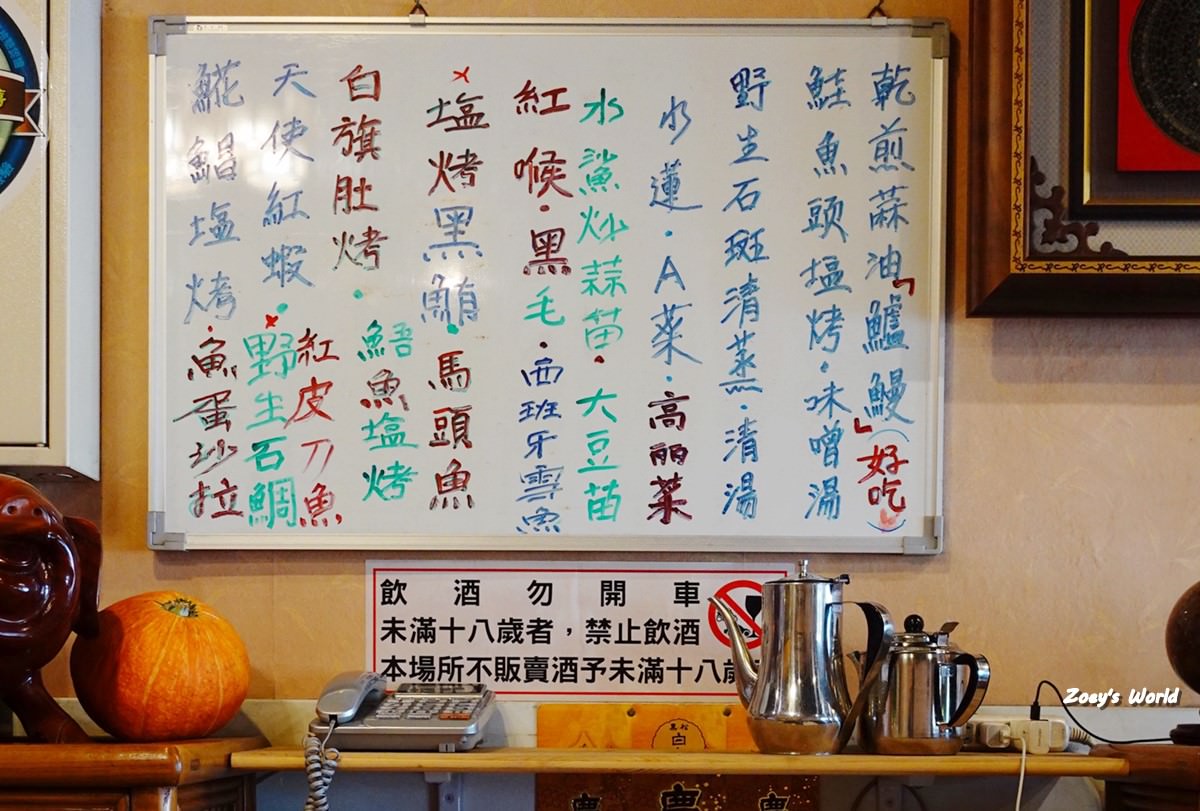 乾煎蒜油「鱸鰻」(好吃)
鮭魚頭塩烤·味噌湯
野生石斑清蒸·清湯
水蓮·A菜·高丽菜
水鯊炒蒜苗·大豆苗
紅喉·黑毛·西班牙雪魚
塩烤黑鮪·馬頭魚
白旗肚烤·鮯魚塩烤
天使紅蝦·野生石鯛
紅皮刀魚
鯤鯧塩烤·魚蛋沙拉
飲酒勿開車
未滿十八歲者，禁止飲酒
本場所不販賣酒予未滿十八歲
Zoey's World